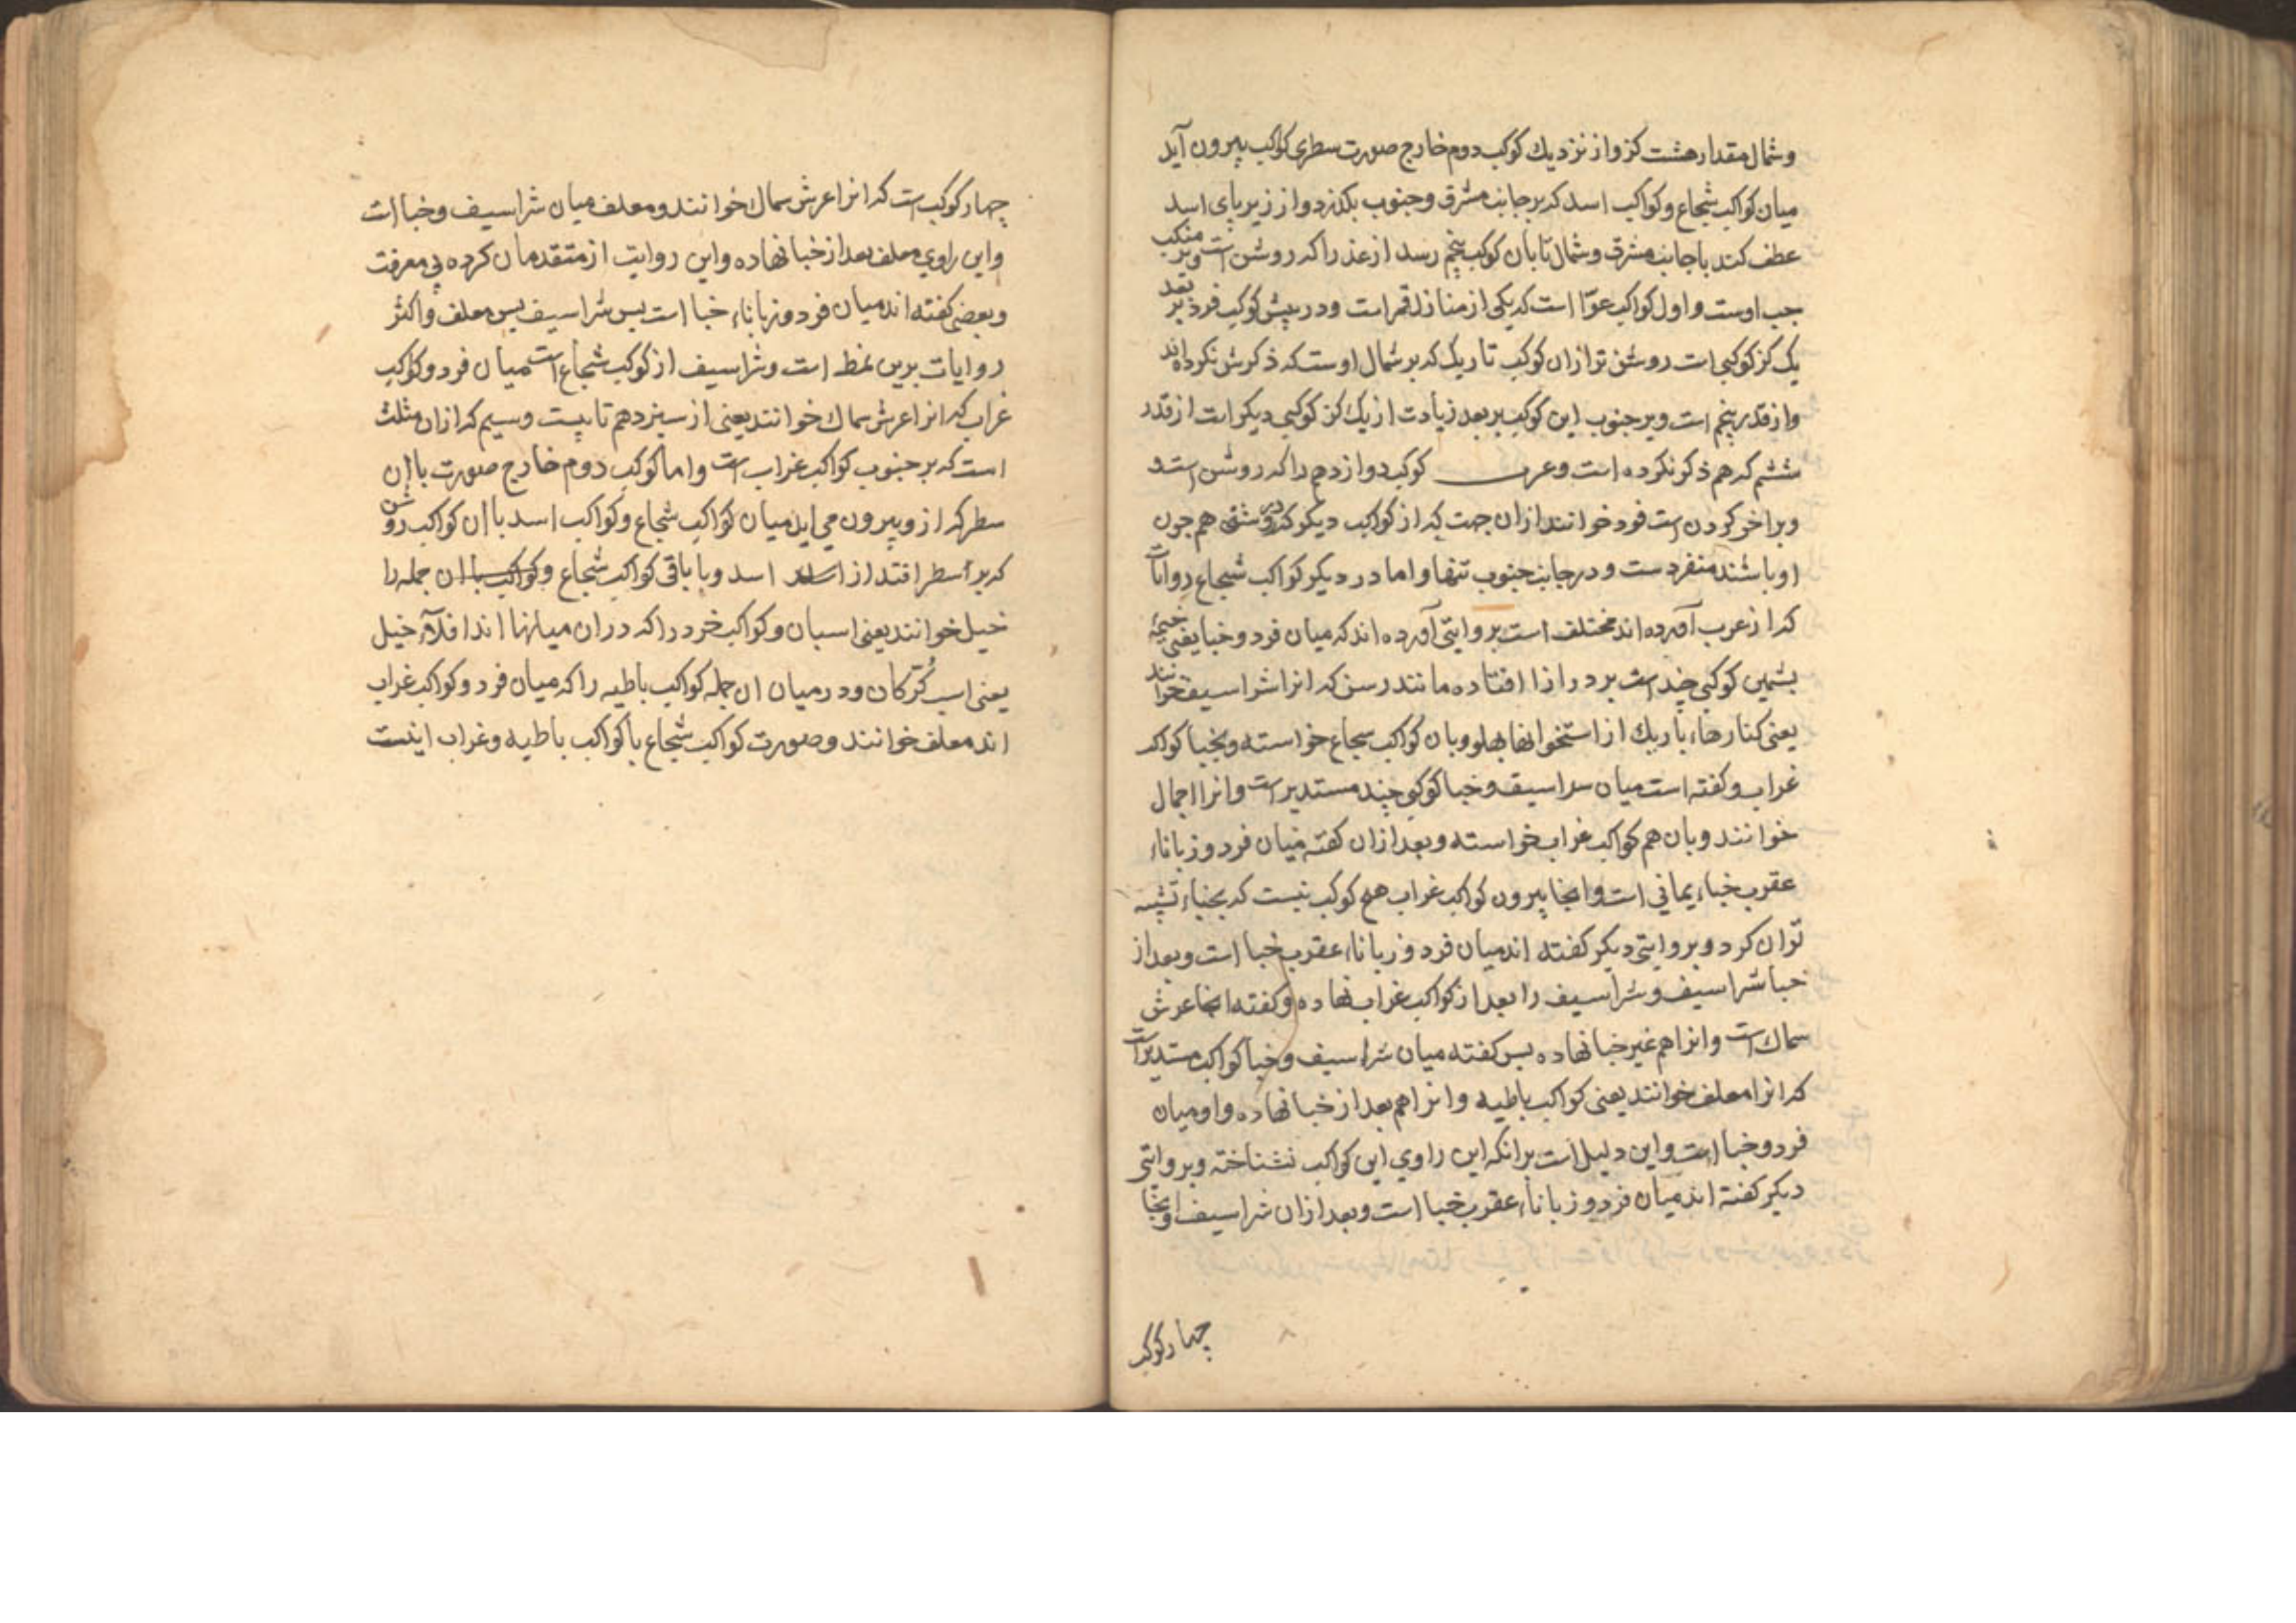 وشمال مقدار هشت کز واز نزدیك کوکب دوم خارج صورت سطری کواکب بیرون آید
میان کواکب شجاع وکواکب اسد که بر جانب مشرق وجنوب بکذرد واز زیر پای اسد
عطف کند با جانب مشرق وشمال تا بان کوکب پنجم رسد از عذرا که روشن است وبر منکب
جب اوست واول کواکب عوّا است که یکی از منازل قمر است ودر پیش کوکب فرد بر بعد
یک کز کوکبی است روشن تر ازان کوکب تاریک که بر شمال اوست که ذکرش نکرده اند
واز قدر پنجم است وبر جنوب این کوکب بر بعد زیادت از یک کز کوکبی دیکر است از قدر
ششم که هم ذکر نکرده است وعرب کوکب دوازدهم را که روشن است و
وبراخر کردن است فرد خوانند ازان جهت که از کواکب دیکر که در روشنی هم جون
او باشند منفردست ودر جانب جنوب تنها واما در دیکر کواکب شجاع روایات
که از عرب آورده اند مختلف است بروایتی آورده اند که میان فرد وخبا یعنی خیمهٔ
بشمین کوکبی چند است بر درازا افتاده مانند رسن که انرا شراسیف خوانند
یعنی کنارهاء باریك از استخوانها بهلو وبان کواکب سجاع خواسته وبخبا کواکب
غراب وکفته است میان سراسیف وخبا کوکبی چند مستدیر است وانرا احمال
خوانند وبان هم کواکب غراب خواسته وبعد ازان کفته میان فرد وزباناء
عقرب خباء یمانی است وانجا بیرون کواکب غراب هیچ کوکب نیست که بخباء تشبیه
توان کرد وبروایتی دیکر کفته اند میان فرد وزباناء عقرب خبا است وبعد از
خبا شراسیف وشراسیف را بعد از کواکب غراب نهاده وکفته انجا عرش
سماك است وانرا هم غیر خبا نهاده بس کفته میان شراسیف وخبا کواکب مستدیر است
که انرا معلف خوانند یعنی کواکب باطیه وانرا هم بعد از خبا نهاده واو میان
فرد وخبا است واین دلیل است برانکه این راوی این کواکب نشناخته وبروایتی
دیکر کفته اند میان فرد وزباناء عقرب خبا است وبعد ازان شراسیف وانجا
چهار کوکب
چهار کوکب است که انرا عرش سماك خوانند ومعلف میان شراسیف وخبا است
واین راوی معلف بعد از خبا نهاده واین روایت از متقدمان کرده بی معرفت
وبعضی کفته اند میان فرد وزباناء خبا است بس شراسیف بس معلف واکثر
روایات برین نمط است وشراسیف از کوکب شجاع است میان فرد وکواکب
غراب که انرا عرش سماك خوانند یعنی از سیزدهم تا بیست وسیم که ازان مثلث
است که بر جنوب کواکب غراب است واما کوکب دوم خارج صورت با ان
سطر که از و بیرون می اید میان کواکب شجاع وکواکب اسد با ان کواکب روشن
که بر آسطر افتد از اسد وبا باقی کواکب شجاع وکواکب با ان جمله را
خیل خوانند یعنی اسبان وکواکب خرد را که دران میانها اند افلاء خیل
یعنی اسب کُرّکان ودر میان ان جمله کواکب باطیه را که میان فرد وکواکب غراب
اند معلف خوانند وصورت کواکب شجاع با کواکب باطیه وغراب اینست